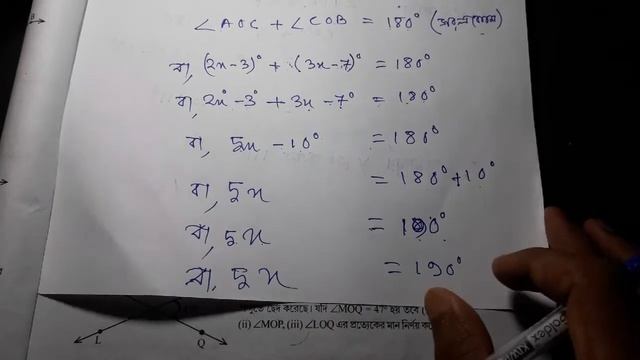 ∠AOC + ∠COB = 180°
বা, (2x-3)° + (3x-7)° = 180°
বা, 2x° - 3° + 3x - 7° = 180°
বা, 5x - 10° = 180°
বা, 5x = 180° + 10°
বা, 5x = 190°
বা, 5x = 190°
ছেদ করেছে। যদি ∠MOQ = 47° হয় তবে
(ii) ∠MOP, (iii) ∠LOQ এর প্রত্যেকের মান নির্ণয়
L
Q